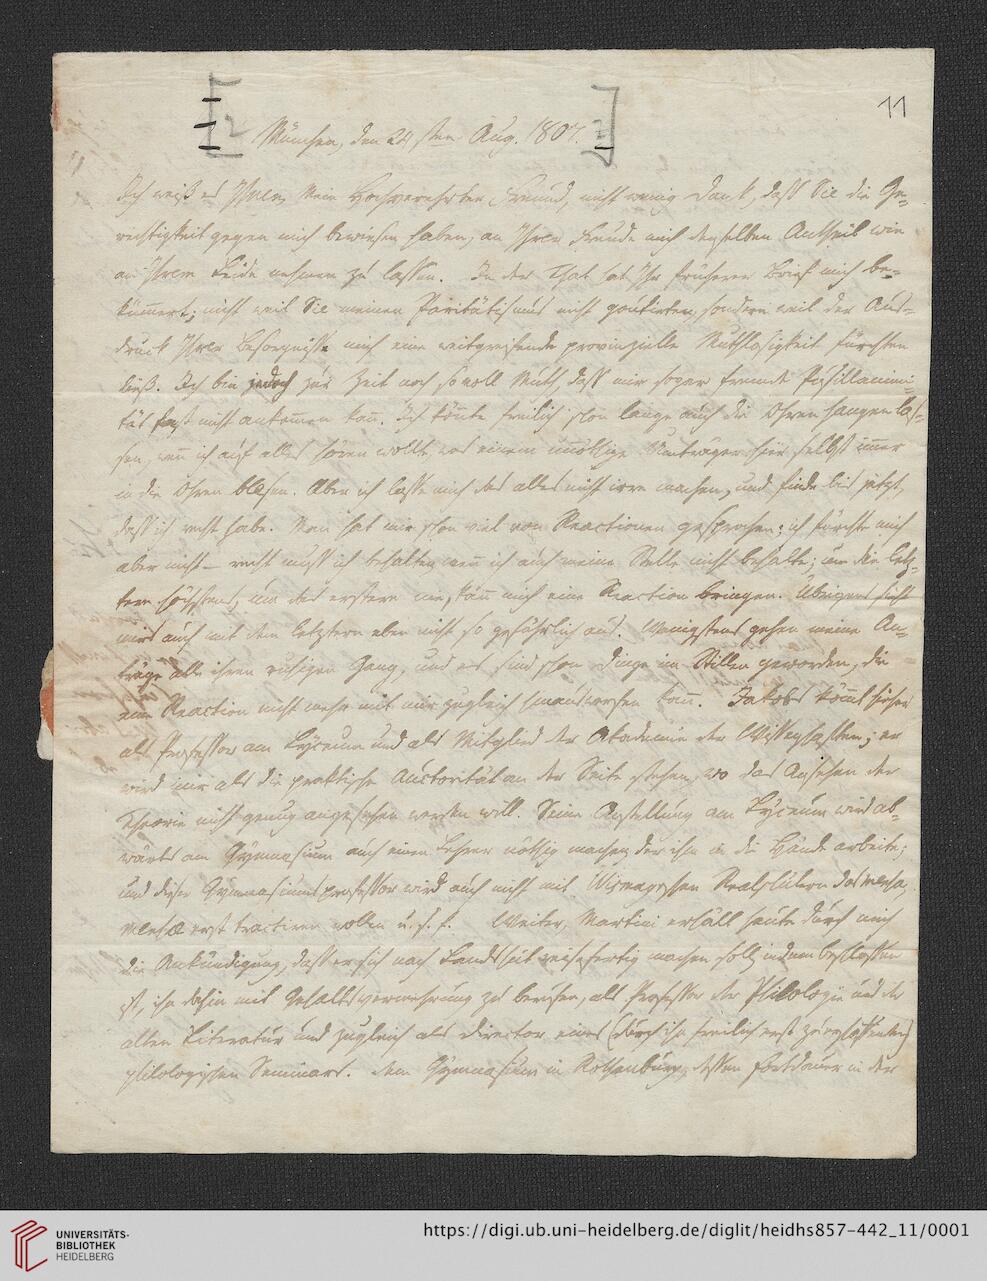 11
2
München, den 24sten Aug. 1807.
Ich weiß es Ihnen, mein Hochverehrter Freund, nicht wenig Dank, daß Sie die Ge-
rechtigkeit gegen mich bewiesen haben, an Ihrer Freude mich denselben Antheil wie
an Ihrem Leide nehmen zu lassen. In der That hat Ihr früherer Brief mich be-
kümmert; nicht weil Sie meinen Paritätismus nicht goutirten, sondern weil der Aus-
druck Ihrer Besorgnisse mich eine weitgreifende provinzielle Muthlosigkeit fürchten
ließ. Ich bin jedoch zur Zeit noch so voll Muth, daß mir sogar fremde Pusillanimi-
tät fast nicht ankommen kann. Ich könte freilich schon lange auch die Ohren hangen las-
sen, wenn ich auf alles hören wollte, was einem unnöthige Zuträger hier selbst immer
in die Ohren blasen. Aber ich lasse mich das alles nicht irre machen, und finde bis jetzt,
daß ich recht habe. Man hat mir schon viel von Reactionen gesprochen; ich fürchte mich
aber nicht – recht muß ich behalten wenn ich auch meine Stelle nicht behalte; um die letz-
tere höchstens, um das erstere nie, kann mich eine Reaction bringen. Übrigens sieht
mirs auch mit dem letztern eben nicht so gefährlich aus. Wenigstens gehen meine An-
träge alle ihren ruhigen Gang, und es sind schon Dinge im Stillen geworden, die
eine Reaction nicht mehr mit mir zugleich hinauswerfen kann. Jakobs kömmt hieher
als Professor am Lyceum und als Mitglied der Akademie der Wissenschaften; er
wird mir als die praktische Auctorität an der Seite stehen, wo das Ansehen der
Theorie nicht genug angesehen werden will. Seine Anstellung am Lyceum wird ab-
wärts am Gymnasium auch einen Lehrer nöthig machen, der ihm in die Hände arbeite;
und dieser Gymnasiumsprofessor wird auch nicht mit Wismayrschen Realschülern das mensa,
mensæ erst tractiren wollen u.s.f. Weiter, Martini erhält heute durch mich
die Ankündigung, daß er sich nach Landshut reisefertig machen soll, indem beschlossen
ist, ihn dahin mit Gehaltsvermehrung zu berufen, als Professor der Philologie und der
alten Literatur und zugleich als Director eines (durch ihn freilich erst zu
philologischen Seminars. Dem Gymnasium in Rothenburg, dessen Fortdauer in der
UNIVERSITÄTS-
BIBLIOTHEK
HEIDELBERG
https://digi.ub.uni-heidelberg.de/diglit/heidhs857-442_11/0001